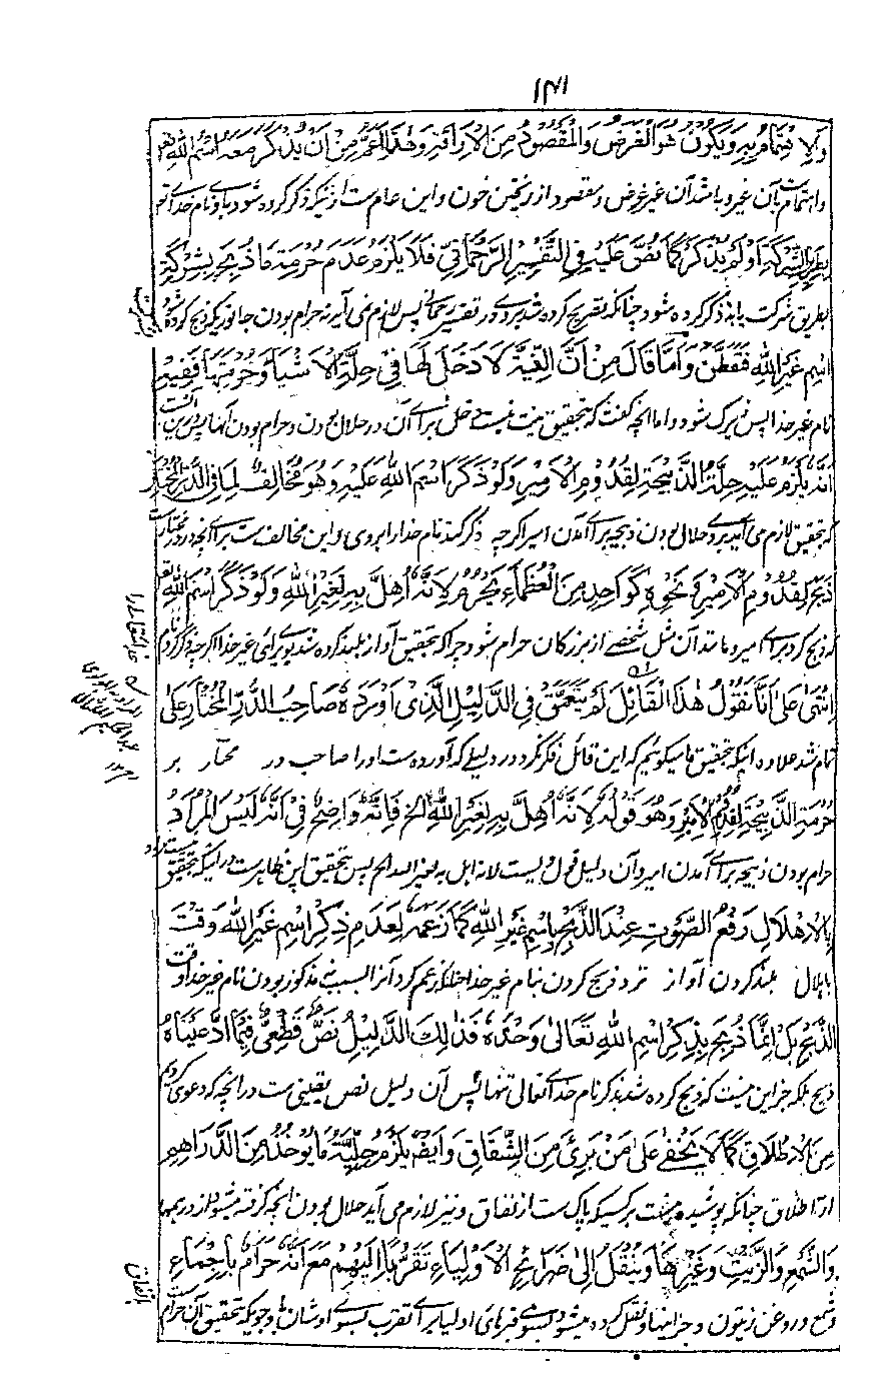 ۱۴۱
ولا هتمام به ويكون هو الغرض والمقصود من الاراقة وهذا اعم من ان يذكر معه اسم الله تعالى
واهتمام بآن غیر و باشد آن غیر غرض و مقصود از ریختن خون و این عام ست از نیکه ذکر کرده شود باو نام خدای تعالی
بطريق الشركة اولم يذكر كما نص عليه فى التفسير الرحمانى فلا يلزم عدم حرمة ما ذبح بشركة
بطریق شرکت یا نه ذکر کرده شود چنانکه تصریح کرده شد بر وی در تفسیر رحمانی پس لازم نمی آید نه حرام بودن جانوریکه ذبح کرده شود بشرکت
اسم غير الله فتفطن واما قال من ان النية لا دخل لها فى حلة الاشياء وحرمتها ففيه
نام غیر خدا پس زیرک شو و اما انچه گفت که بتحقیق نیت نیست دخل برای آن در حلال بودن و حرام بودن آنها پس درین ست
انه يلزم عليه حلة الذبيحة لقدوم الامير ولو ذكر اسم الله عليه وهو مخالف لما فى الدر المختار
که بتحقیق لازم می آید بر و حلال بودن ذبیحه برای آمدن امیر اگرچه ذکر کند نام خدا را بروی و این مخالف ست برای انچه در در مختار ست
ذبح لقدوم الامير ونحوه كواحد من العظماء يحرم لانه اهل به لغير الله ولو ذكر اسم الله تعالى
که ذبح کرد برای امیر و مانند آن مثل شخصے از بزرگان حرام شود چرا که بتحقیق آواز بلند کرده شد بوی برای غیر خدا اگرچه ذکر کردم نام
انتهى على انا نقول هذا القائل لم يتعمق فى الدليل الذى اورده صاحب الدر المختار على
تمام شد علاوه اینکه بتحقیق ما میگوئیم که این قائل فکر نکرد در دلیلے که آورده ست او را صاحب در مختار بر
حرمة الذبيحة لقدوم الامير وهو قوله لانه اهل به لغير الله الخ فانه واضح فى انه ليس المراد
حرام بودن ذبیحه برای آمدن امیر و آن دلیل قول ویست لانه اهل به لغیر الله الخ پس بتحقیق این ظاهر ست در اینکه بتحقیق نیست مراد
بالاهلال رفع الصوت عند الذبح باسم غير الله كما زعمه لعدم ذكر اسم غير الله وقت
باهلال بلند کردن آواز نزد ذبح کردن بنام غیر خدا چنانکه زعم کرد آنرا بسبب نه مذکور بودن نام غیر خدا وقت
الذبح بل انما ذبح بذكر اسم الله تعالى وحده فذلك الدليل نص قطعى فيما ادعيناه
ذبح بلکه جز این نیست که ذبح کرده شد بذکر نام خدای تعالی تنها پس آن دلیل نص یقینی ست در انچه که دعوی کردیم
من الاطلاق كما لا يخفى على من برئ من الشقاق وايضا يلزم حلية ما يوخذ من الدراهم
از اطلاق چنانکه پوشیده نیست بر کسیکه پاک ست از نفاق و نیز لازم می آید حلال بودن انچه گرفته میشود از درهمها
والشمع والزيت وغيرها وينقل الى ضرائح الاولياء تقربا اليهم مع انه حرام باجماع
و شمع و روغن زیتون و جز اینها و نقل کرده میشود بسوی قبرهای اولیا برای تقرب بسوی اوشان باوجودیکه بتحقیق آن حرام ست
باتفاق